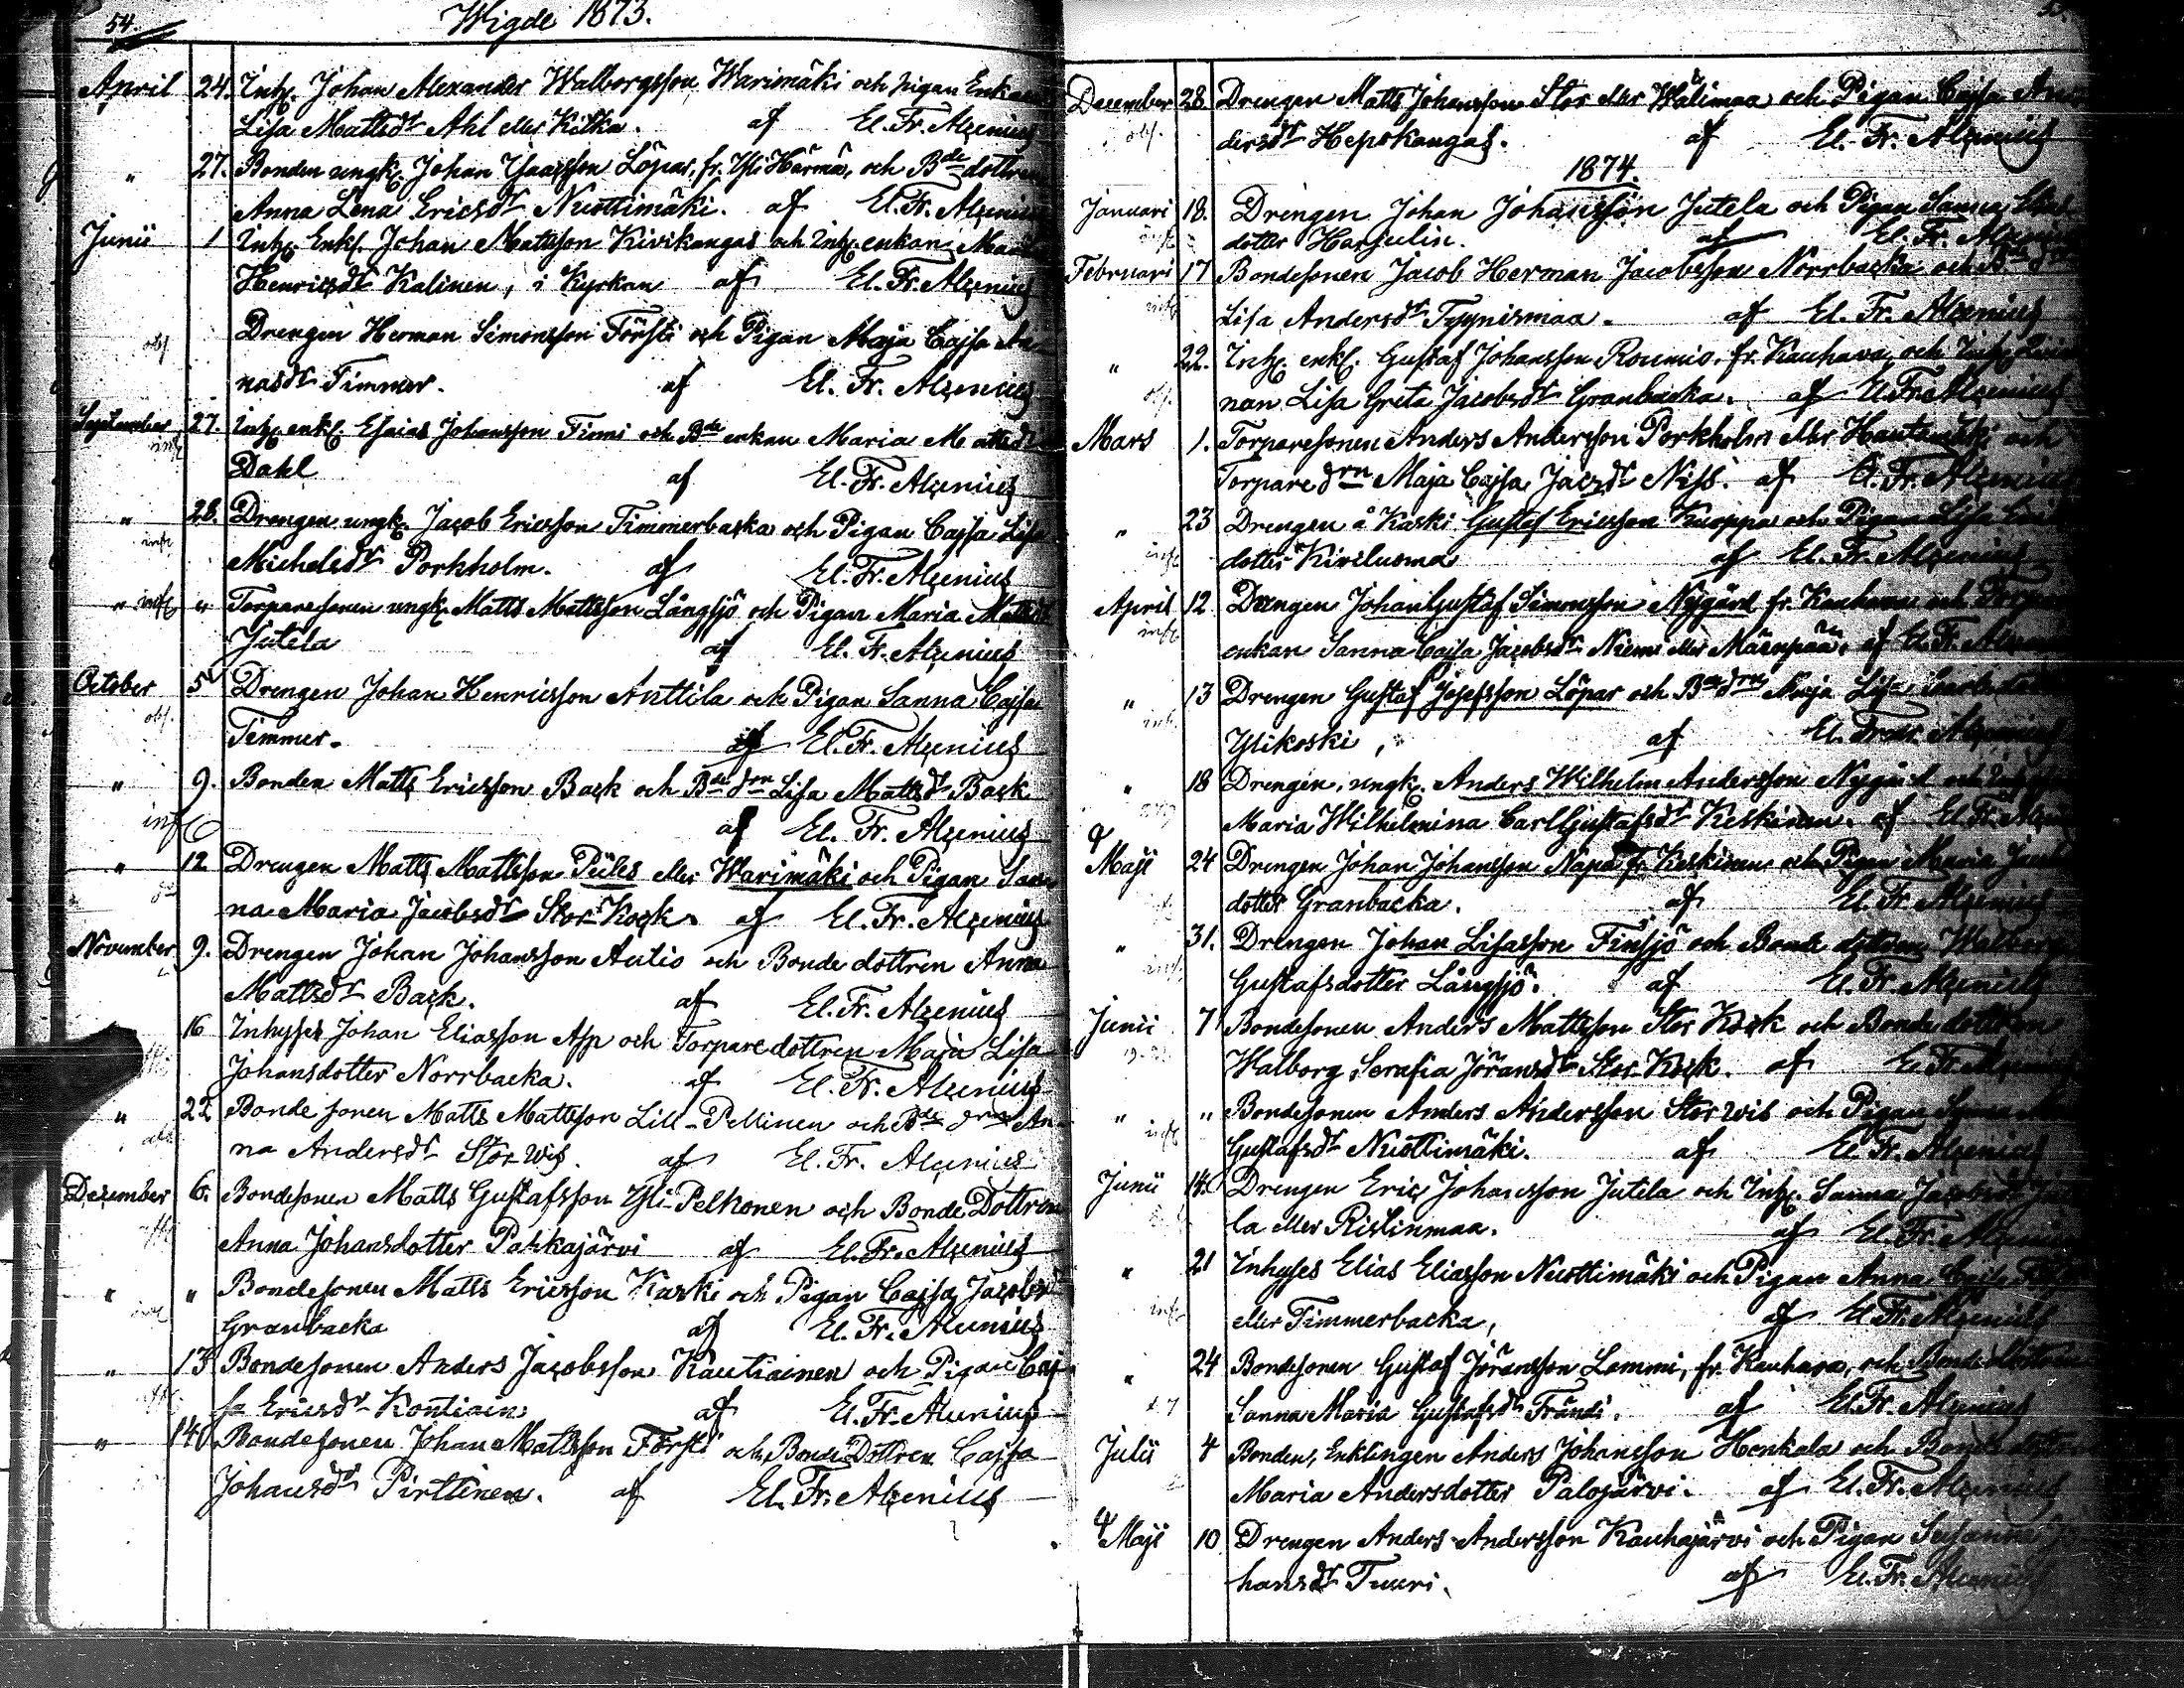 54.
Wigde 1873.
April 24. Inh. Johan Alexander Walborgsson Warimäki och pigan
Lisa Mattsdr Ahl eller Kitka. af El. Fr. Alcenius
" 27. Bonden ungk. Johan Isaacsson Löpar, fr. Yli Härmä, och Bde dottren
Anna Lena Ericsdr Nuottimäki. af El. Fr. Alcenius
Junii 1 Inh. Enkl. Johan Mattsson Kivikangas och Inh. enkan Maria
Henricsdr Kalinen, i Kyrkan af El. Fr. Alcenius
Drengen Herman Simonsson Försti och Pigan Maja Cajsa
nasdr Timmer. af El. Fr. Alcenius
September 27. Inh. enkl. Esaias Johansson Finni och Bde enkan Maria Mattsdr
Dahl af El. Fr. Alcenius
" 28. Drengen ungk. Jacob Ericsson Timmerbacka och Pigan Cajsa Lisa
Michelsdr Porkholm. af El. Fr. Alcenius
" " Torparesonen ungk. Matts Mattsson Långsjö och Pigan Maria Mattsdr
Jutela af El. Fr. Alcenius
October 5 Drengen Johan Henricsson Anttila och Pigan Sanna Cajsa
Timmer. af El. Fr. Alcenius
" 9. Bonden Matts Ericsson Back och Bde drn Lisa Mattsdr Back
af El. Fr. Alcenius
" 12 Drengen Matts Mattsson Peiles eller Warimäki och Pigan San
na Maria Jacobsdr Stor Kock. af El. Fr. Alcenius
November 9. Drengen Johan Johansson Autio och Bonde dottren Anna
Mattsdr Back. af El. Fr. Alcenius
16 Inhyses Johan Eliasson Asp och Torpare dottren Maja Lisa
Johansdotter Norrbacka. af El. Fr. Alcenius
" 22 Bonde sonen Matts Mattsson Lill-Pellinen och Bde drn An
na Andersdr Stor Wis. af El. Fr. Alcenius
December 6. Bondesonen Matts Gustafsson Yli-Pelkonen och Bonde Dottren
Anna Johansdotter Paskajärvi af El. Fr. Alcenius
" " Bondesonen Matts Ericsson Karki och Pigan Cajsa Jacobsdr
Granbacka af El. Fr. Alcenius
" 13 Bondesonen Anders Jacobsson Kautiainen och Pigan Caj
sa Ericsdr Kontiain af El. Fr. Alcenius
" 14 Bondesonen Johan Mattsson Försti och Bonde Dottren Cajsa
Johansdr Pirttinen. af El. Fr. Alcenius
December 28 Drengen Matts Johansson Stor eller Wälimaa och Pigan Cajsa An
dersdr Hepokangas. af El. Fr. Alcenius
1874.
Januari 18. Drengen Johan Johansson Jutela och Pigan Sanna
dotter Harjulin. af El. Fr. Alcenius
Februari 17 Bondesonen Jacob Herman Jacobsson Norrbacka och
Lisa Andersdr Tyynismaa. af El. Fr. Alcenius
" 22. Inh. enkl. Gustaf Johansson Roumio, fr. Kauhava, och Inh.
nan Lisa Greta Jacobsdr Granbacka. af El. Fr. Alcenius
Mars 1. Torparesonen Anders Andersson Porkholm eller Hautamäki och
Torpare drn Maja Cajsa Jacsdr Niss. af El. Fr. Alcenius
" 23 Drengen å Karki Gustaf Ericsson Knoppa och Pigan Lisa
dotter Kiviluoma af El. Fr. Alcenius
April 12 Drengen Johan Gustaf Simonsson Nygård fr. Kauhava och
enkan Sanna Cajsa Jacobsdr Niemi eller Mäenpää, af El. Fr. Alcenius
" 13 Drengen Gustaf Josefsson Löpar och Bde drn Maja Lisa
Ylikoski, af El. Fr. Alcenius
" 18 Drengen, ungk. Anders Wilhelm Andersson Nygård och
Maria Wilhelmina Carl Gustafsdr Keskinen. af El. Fr. Alcenius
Maji 24 Drengen Johan Johansson Napa fr. Keskinen och Pigan Maria
dotter Granbacka. af El. Fr. Alcenius
" 31. Drengen Johan Lisasson Finsjö och Bonde dottren Walborg
Gustafsdotter Långsjö. af El. Fr. Alcenius
Junii 7 Bondesonen Anders Mattsson Stor Kock och Bonde dottren
Walborg Serafia Jöransdr Stor Kock. af El. Fr. Alcenius
" " Bondesonen Anders Andersson Stor Wis och Pigan Sanna
Gustafsdr Nuottimäki. af El. Fr. Alcenius
Junii 14. Drengen Eric Johansson Jutela och Inh. Sanna Jacobsdr
la eller Ristinmaa. af El. Fr. Alcenius
" 21 Inhyses Elias Eliasson Nuottimäki och Pigan Anna Cajsa
eller Timmerbacka, af El. Fr. Alcenius
" 24 Bondesonen Gustaf Jöransson Lammi, fr. Kauhava, och Bonde dottren
Sanna Maria Gustafsdr Frändi. af El. Fr. Alcenius
Julii 4 Bonden, Enklingen Anders Johansson Honkala och Bonde
Maria Andersdotter Palojärvi. af El. Fr. Alcenius
Maji 10 Drengen Anders Andersson Kauhajärvi och Pigan Susanna
hansdr Tuuri. af El. Fr. Alcenius